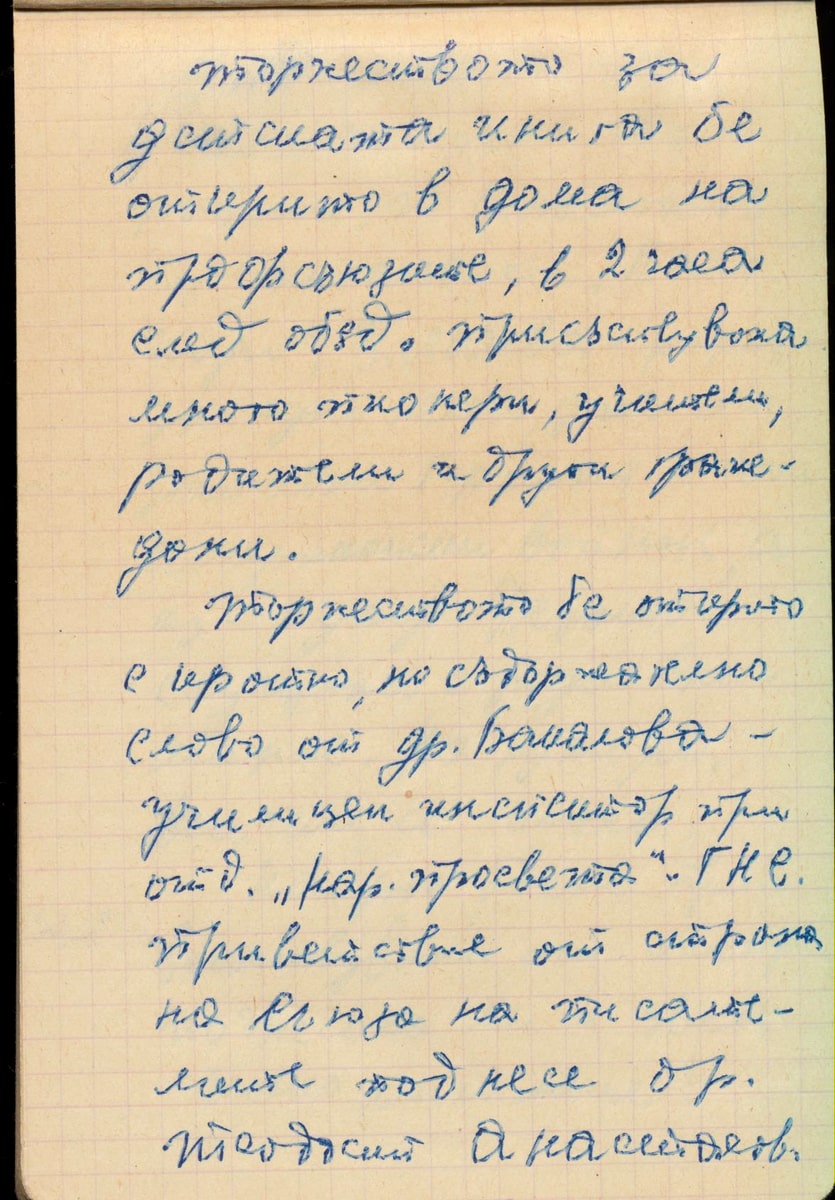 Тържеството за
детската книга бе
открито в дома на
профсъюзите, в 2 часа
след обяд. Присъствуваха
много пионери, учители,
родители и други граж-
дани.
Тържеството бе открито
с кратко, но съдържателно
слово от др. Бакалова –
училищен инспектор при
отд. „Нар. просвета“ – ГНС.
Приветствие от страна
на Съюза на писате-
лите поднесе др.
Теодосий Анастасов.